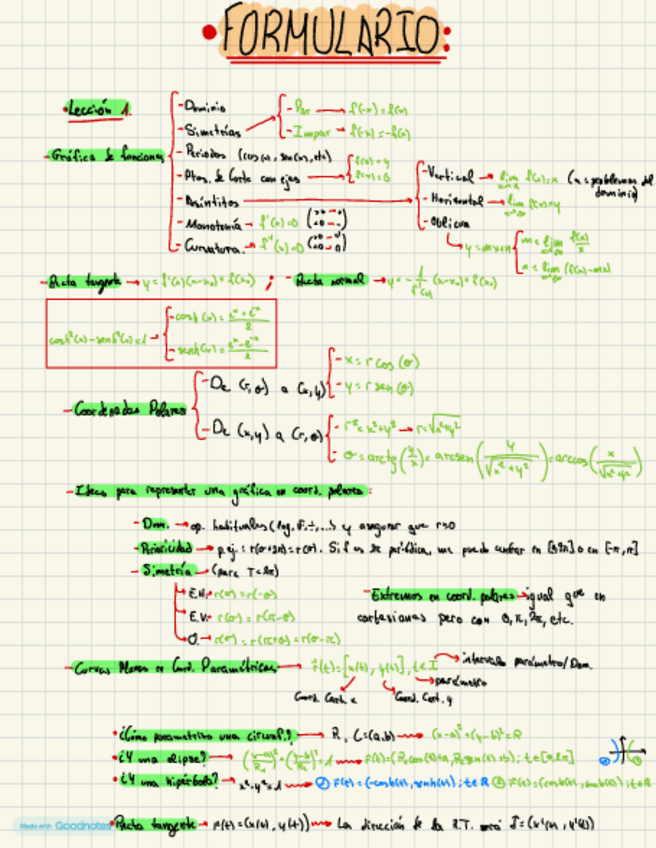 FORMULARIO:
Lección 1.
- Gráfica de funciones
- Dominio
- Simetrías
- Par → f(-x)=f(x)
- Impar → f(-x)=-f(x)
- Periodos (cos(x), sen(x), etc)
- Ptos. de Corte con ejes
f(x)=0
- Asíntotas
- Vertical → lim f(x)=∞ (a = problemas del dominio)
- Horizontal → lim f(x)=y
- Oblicua
y=mx+n
m=lim f(x)/x
n=lim (f(x)-mx)
- Monotonía → f'(x)=0
- Curvatura → f''(x)=0
- Recta tangente → y=f'(x)(x-x₀)+f(x₀) ; - Recta normal → y=-1/f'(x) (x-x₀)+f(x₀)
cosh²(x)-senh²(x)=1 →
- cosh(x)=(eˣ+e⁻ˣ)/2
- senh(x)=(eˣ-e⁻ˣ)/2
- Coordenadas Polares
- De (r,σ) a (x,y)
- x=r cos(σ)
- y=r sen(σ)
- De (x,y) a (r,σ)
- r²=x²+y² → r=√(x²+y²)
- σ=arctg(y/x)=arcsen(y/√(x²+y²))=arccos(x/√(x²+y²))
- Ideas para representar una gráfica en coord. polares:
- Dom. → op. habituales (log, √, ÷, ...) y asegurar que r≥0
- Periodicidad → p.ej.: r(σ+2π)=r(σ). Si f es periódica, me puedo centrar en [0,2π] o en [-π,π]
- Simetría → (para T=2π)
E.H. → r(σ)=r(-σ)
E.V. → r(σ)=r(π-σ)
O. → r(σ)=r(π+σ)=r(σ-π)
- Extremos en coord. polares → igual que en
cartesianas pero con 0, π, 2π, etc.
- Curvas Planas en Coord. Paramétricas → r(t)=[x(t), y(t)], t∈I
intervalo parámetro/Dom.
parámetro
Coord. Cart. x
Coord. Cart. y
• ¿Cómo parametrizo una circunf.? → R, C=(a,b) → (x-a)²+(y-b)²=R
• ¿Y una elipse? → r(t)=(R₁cos(t)+a, R₂sen(t)+b); t∈[0,2π]
• ¿Y una hipérbola? → x²-y²=1 → r(t)=(-cosh(t), senh(t)); t∈R r(t)=(cosh(t), senh(t)); t∈R
• Recta tangente → r(t)=(x(t), y(t)) → La dirección de la R.T. será
Made with Goodnotes